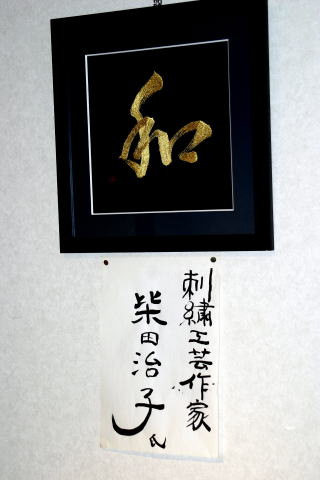 和
刺繍工芸作家
柴田治子氏